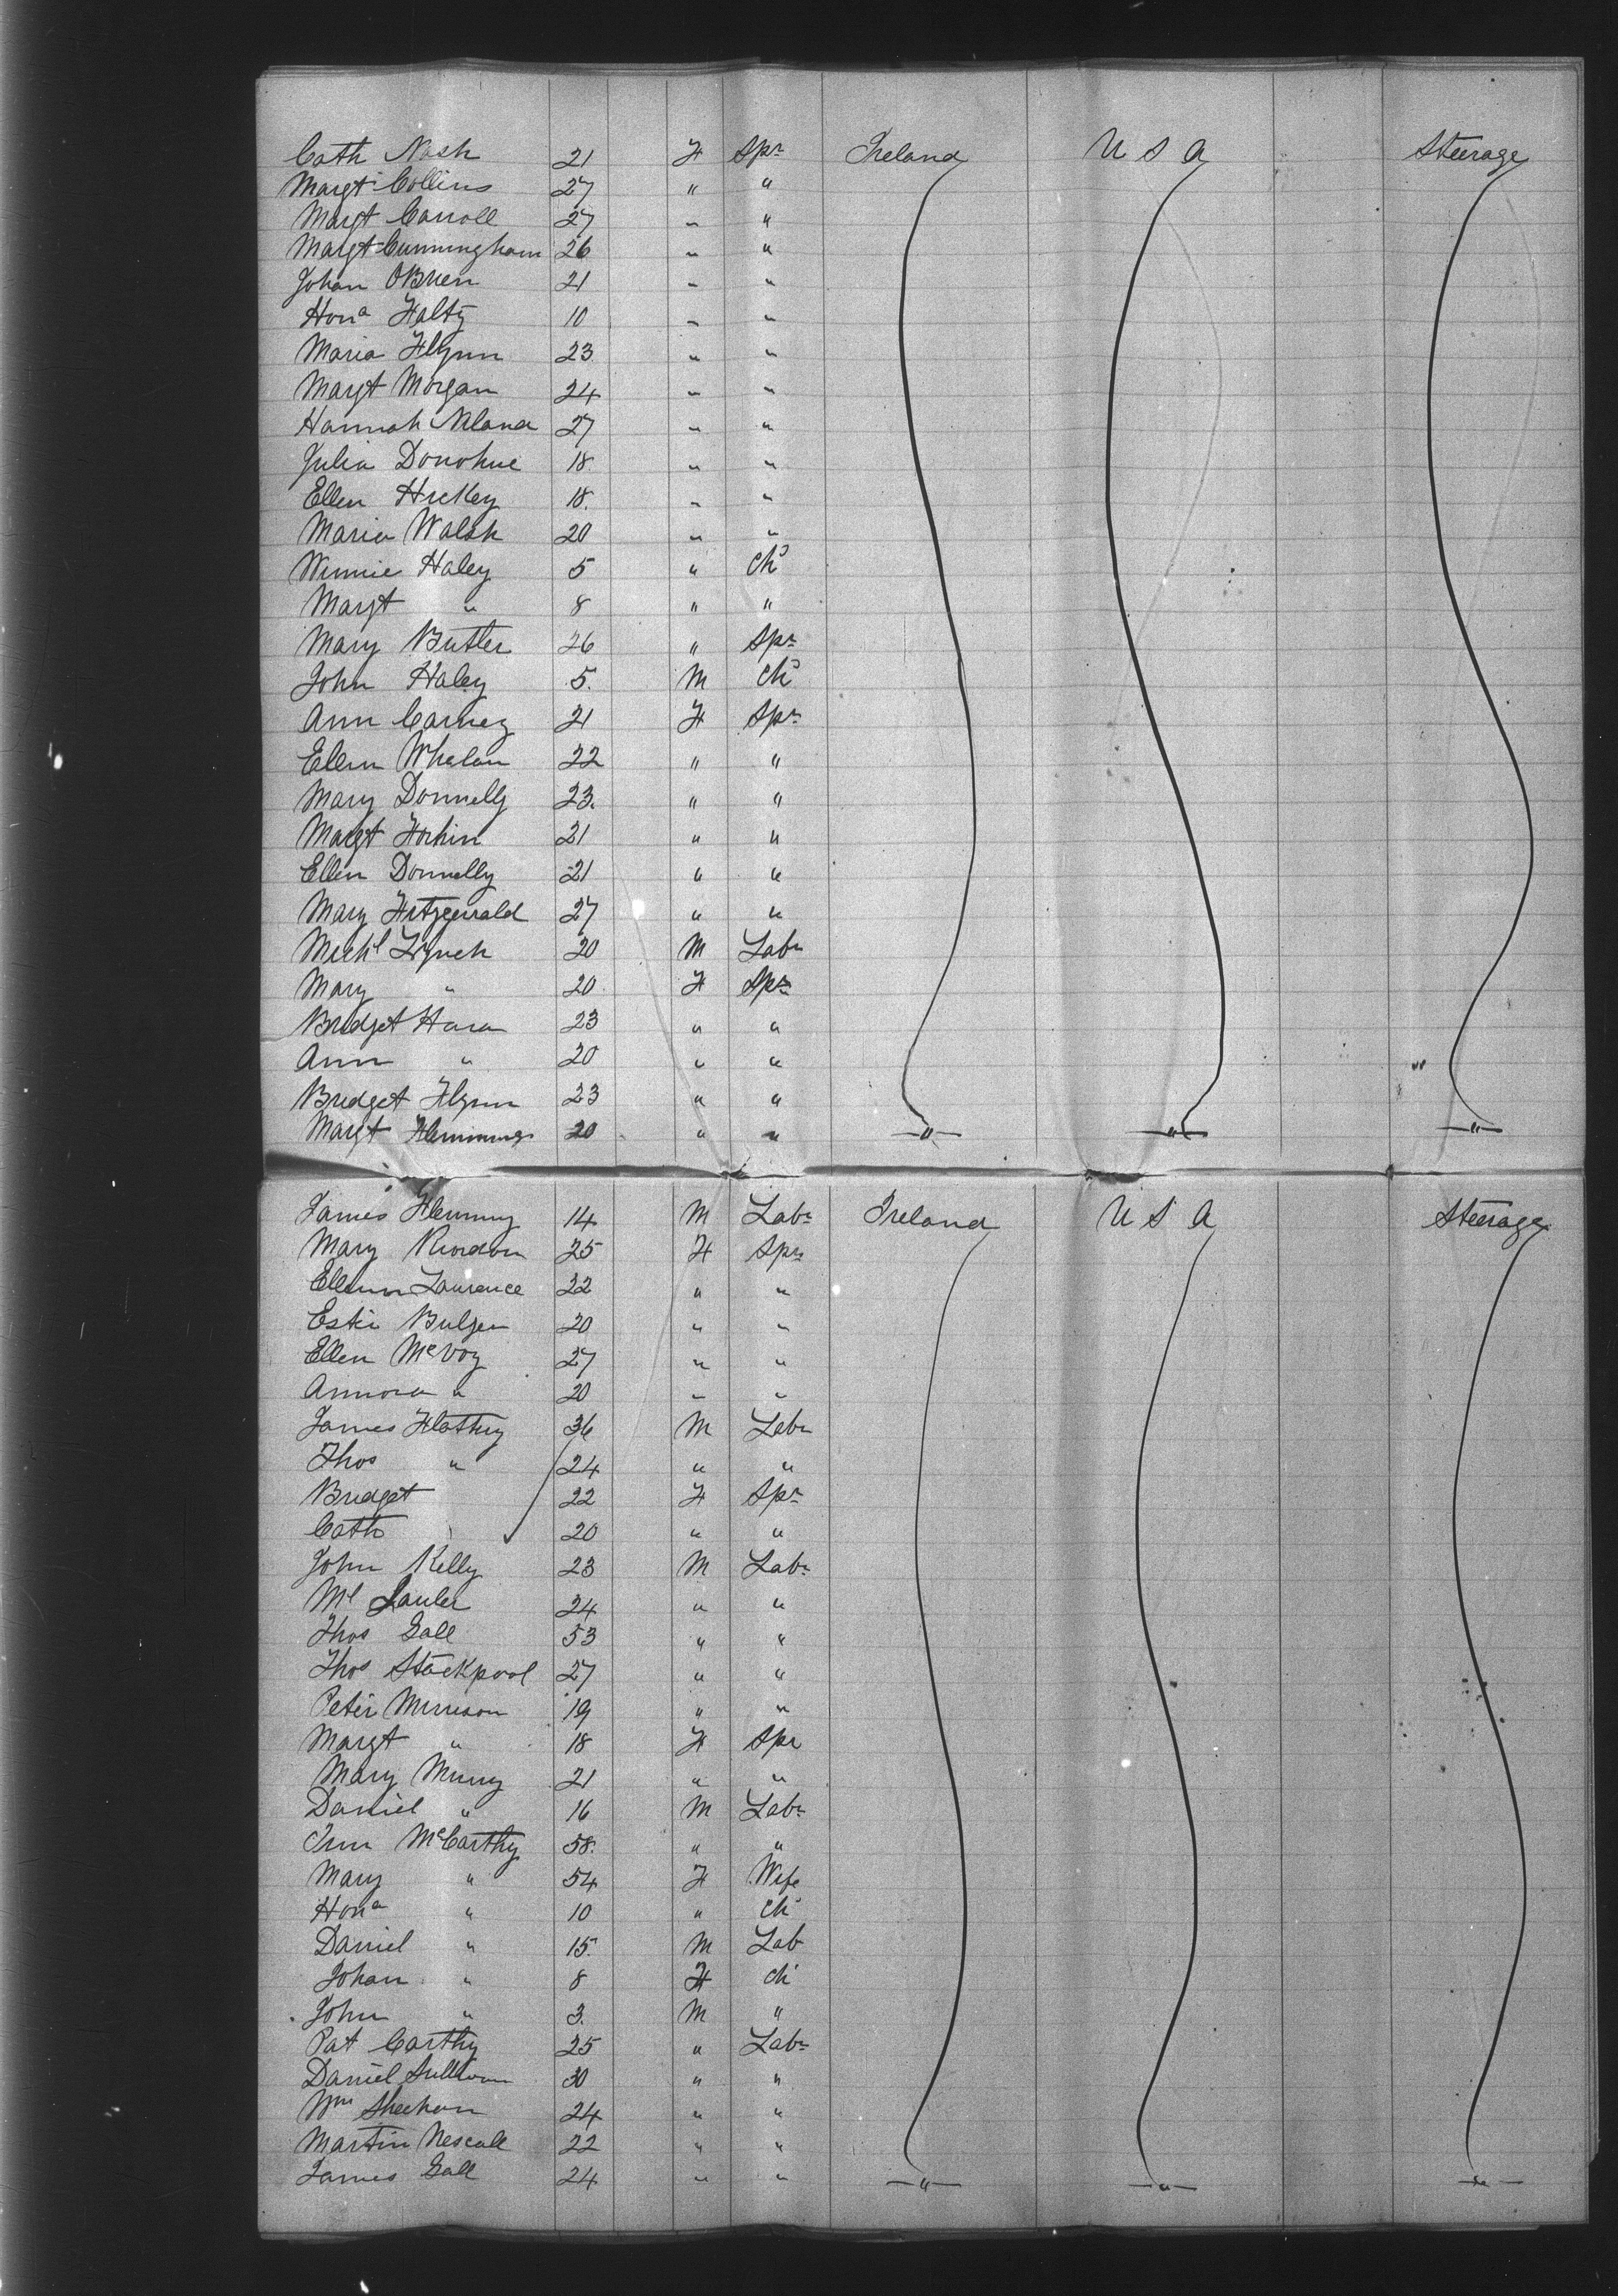 Cath Nash 21 F Spr Ireland U S A Steerage
Margt Collins 27 " "
Margt Carroll 27 " "
Margt Cunningham 26 " "
Johan OBrien 21 " "
Hona Falty 10 " "
Maria Flynn 23 " "
Margt Morgan 24 " "
Hannah Neland 27 " "
Julia Donohue 18 " "
Ellen Hickey 18. " "
Maria Walsh 20 " "
Winnie Haley 5 " Chd
Margt " 8 " "
Mary Butler 26 " Spr
John Haley 5. M Chd
Ann Carney 21 F Spr
Ellen Whelan 22 " "
Mary Donnelly 23. " "
Margt 21 " "
Ellen Donnelly 21 " "
Mary Fitzgerald 27 " "
Michl Lynch 20 M Labr
Mary " 20 F Spr
Bridget Hara 23 " "
Ann " 20 " "
Bridget Flynn 23 " "
Margt Flemming 20 " " " " "
James Flemming 14 M Labr Ireland U S A Steerage
Mary Riordan 25 F Spr
Laurence 22 " "
Ester Bulger 20 " "
Ellen McVoy 27 " "
Annora " 20 " "
James Flathry 36 M Labr
Thos " 24 " "
Bridget 22 F Spr
Cath 20 " "
John Kelly 23 M Labr
Ml Lauler 24 " "
Thos Gall 53 " "
Thos Stackpool 27 " "
Peter 19 " "
Margt " 18 F Spr
Mary Murry 21 " "
Daniel " 16 M Labr
McCarthy 58. " "
Mary " 54 F Wife
Hona " 10 " Ch
Daniel " 15. M Lab
Johan " 8 F Ch
John " 3. M "
Pat Carthy 25 " Labr
Daniel Sullivan 30 " "
Wm Sheehan 24 " "
Martin Nescall 22 " "
James Gall 24 " " " " "